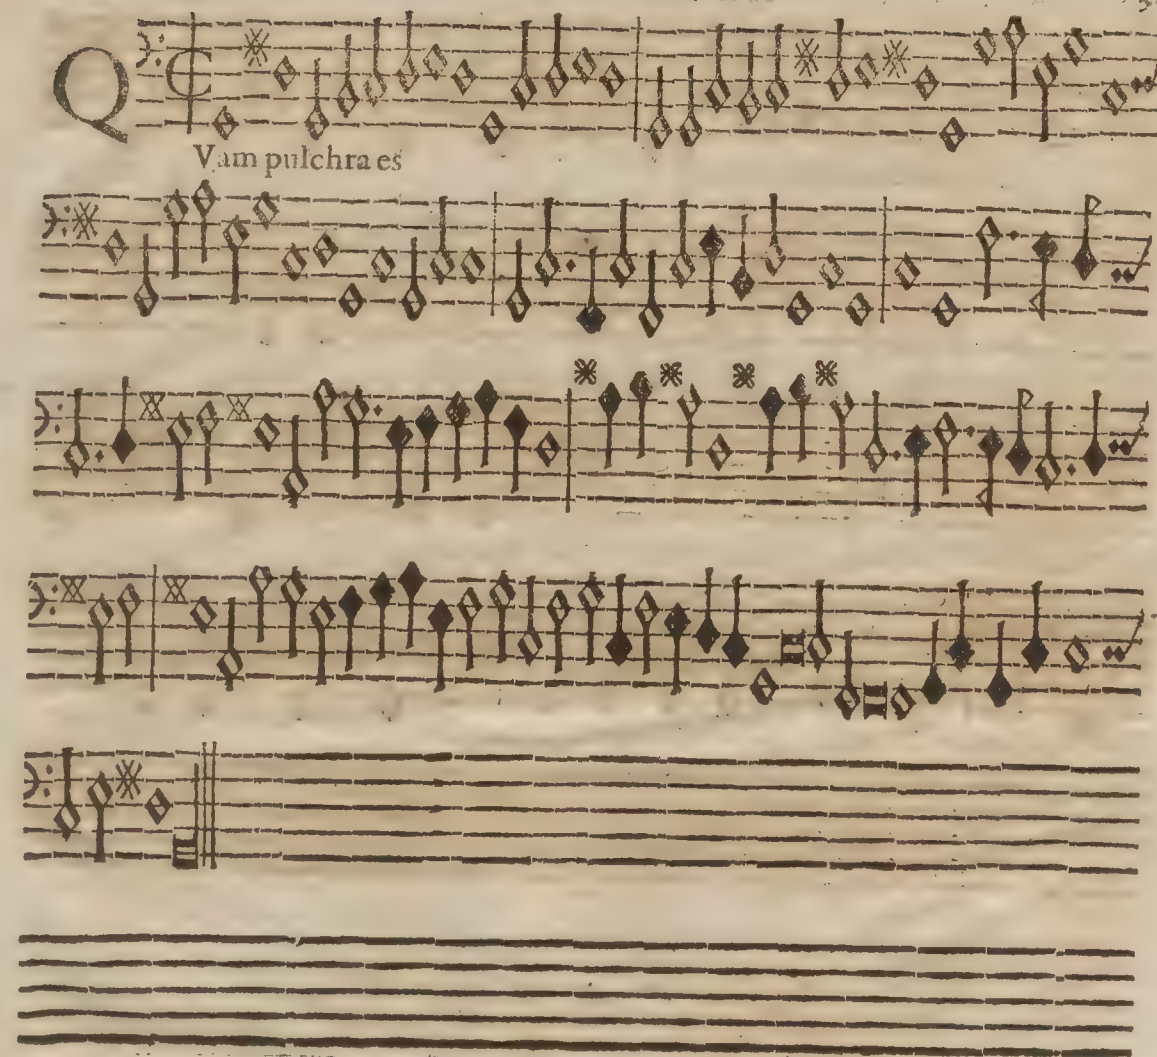 QVam pulchra es